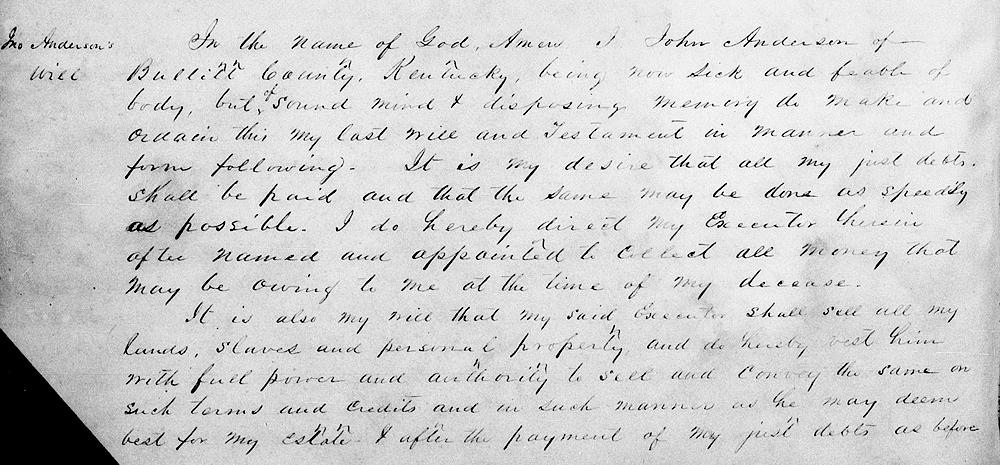 Jno Anderson's
Will
In the name of God, Amen I John Anderson of
Bullitt County, Kentucky, being now sick and feable of
body, but of sound mind & disposing memory do make and
ordain this my last will and Testament in manner and
form following. It is my desire that all my just debts.
shall be paid and that the same may be done as speedily
as possible. I do hereby direct my Executor herein
after named and appointed to collect all money that
may be owing to me at the time of my decease.
It is also my will that my said Executor shall sell all my
lands, slaves and personal property and do hereby vest him
with full power and authority to sell and convey the same on
such terms and credits and in such manner as he may deem
best for my estate & after the payment of my just debts as before